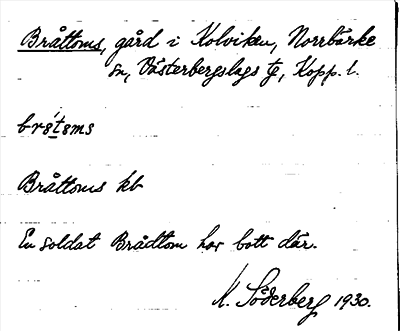 Bråttoms, gård i Kolviken, Norrbärke
sn, Västerbergslags tg, Kopp. l.
brǫ́tsms
Bråttoms kb
En soldat Brådtom har bott där.
K. Söderberg 1930.